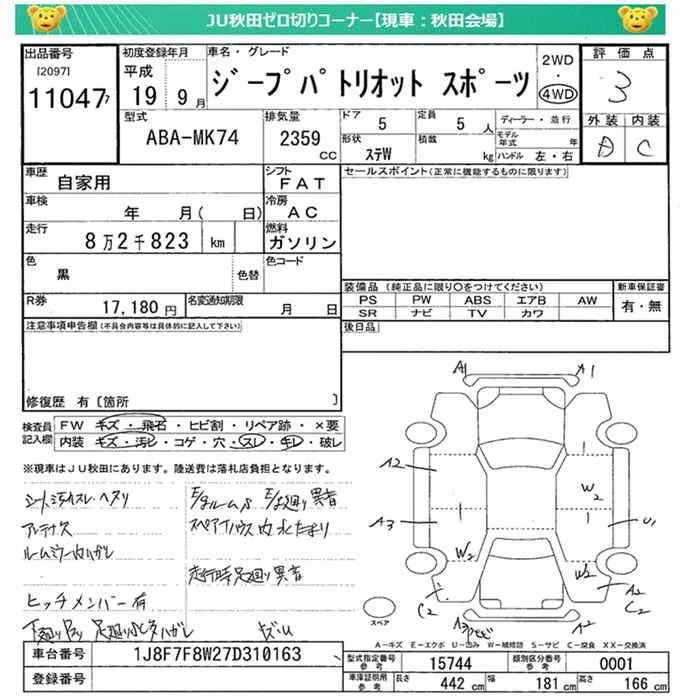 JU秋田ゼロ切りコーナー【現車：秋田会場】
出品番号 初度登録年月 車名・グレード 評価点
[2097] 平成 ジープパトリオット スポーツ 2WD 3
11047 19 9月 4WD
外装 内装
型式 排気量 ドア 5 定員 5 人 ディーラー・並行 A C
ABA-MK74 2359 cc 形状 ステW 積載 kg モデル年式 年
ハンドル 左・右
車歴 自家用 シフト FAT セールスポイント(正常に機能するものに限ります)
車検 年 月( 日) 冷房 AC
走行 8万2千823 km 燃料 ガソリン
色 黒 色替 色コード
装備品 (純正品に限り○をつけてください) 新車保証書
R券 17,180円 名変通知期限 月 日 PS PW ABS エアB AW 有・無
SR ナビ TV カワ
注意事項申告欄(不具合内容等は具体的に記入して下さい) 後日品
修復歴 有 [箇所 ]
検査員記入欄 FW キズ・飛石・ヒビ割・リペア跡・×要
内装 キズ・汚レ・コゲ・穴・スレ・キレ・破レ
※現車はJU秋田にあります。陸送費は落札店負担となります。
シート汚れスレ・ヘタリ
アンテナ欠 スペアハウス内水たまり
ルームミラー内ハガレ
走行時足廻り異音
ヒッチメンバー有
A1 A1
A2
W2
A3 U1
W2 W2
C2 A2
C2
A3
スペア
A－キズ E－エクボ U－凹み W－補修跡 S－サビ C－腐食 XX－交換済
車台番号 1J8F7F8W27D310163 型式指定番号 15744 類別区分番号 0001
登録番号 車庫証明用参考 長さ 442 cm 幅 181 cm 高さ 166 cm